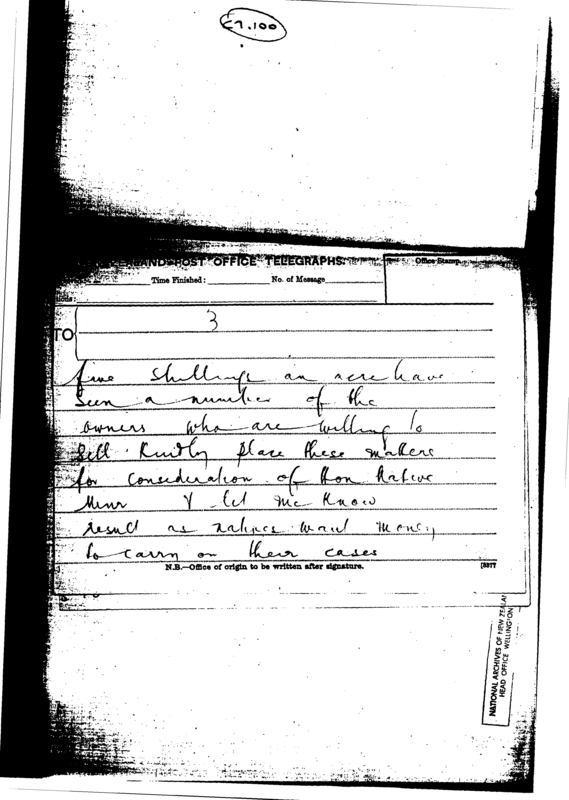 £7.100
AND POST OFFICE TELEGRAPHS.
Office Stamp
Time Finished: No. of Message
TO
3
five shillings an acre have
seen a number of the
owners who are willing to
sell Kindly place these matters
for consideration of Hon Native
Minr & let me know
result as natives want money
to carry on their cases
N.B.—Office of origin to be written after signature.
[3377
NATIONAL ARCHIVES OF NEW ZEALAN
HEAD OFFICE WELLINGTON